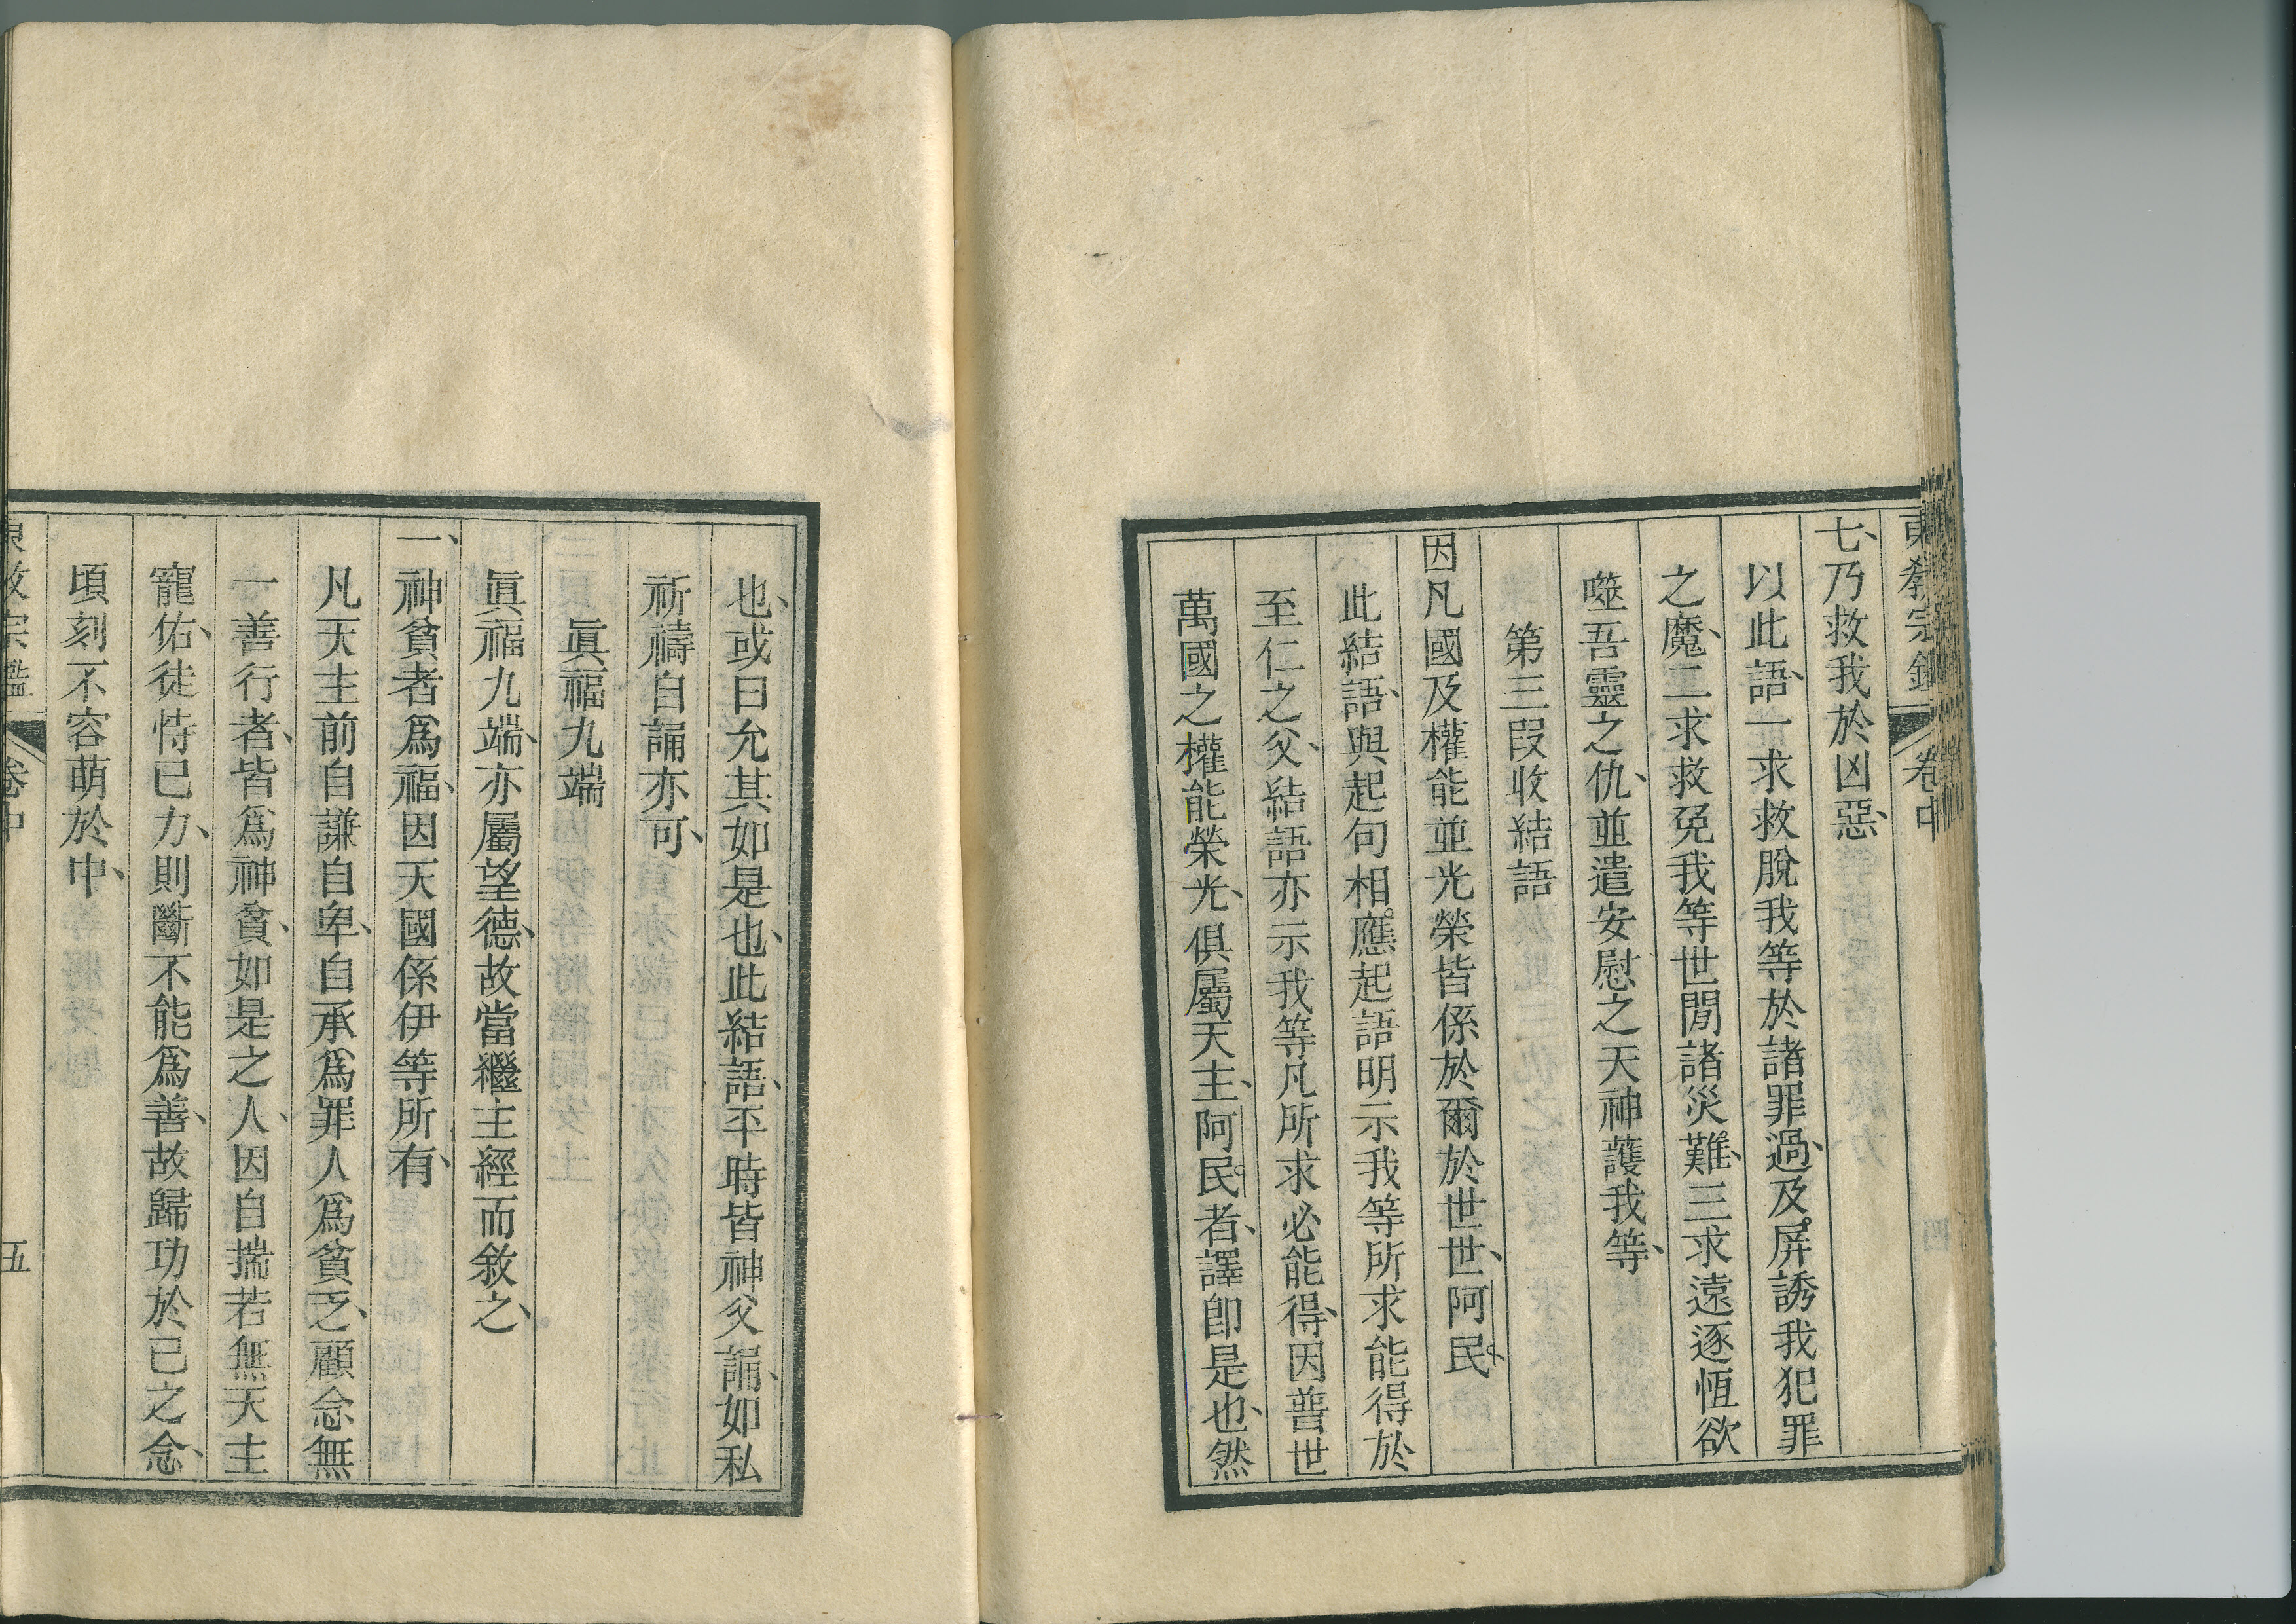 東教宗鑑 卷中
七、乃救我於凶惡、
以此語、一求救脫我等於諸罪過、及屏誘我犯罪
之魔、二求救免我等世間諸災難、三求遠逐恆欲
噬吾靈之仇、並遣安慰之天神護我等、
第三段收結語
因凡國及權能並光榮皆係於爾於世世、阿民
此結語、與起句相應、起語明示我等所求能得於
至仁之父、結語亦示我等凡所求必能得、因普世
萬國之權能榮光、俱屬天主、阿民者、譯卽是也、然
也、或曰允其如是也、此結語、平時皆神父誦、如私
祈禱自誦亦可、
眞福九端
眞福九端、亦屬望德、故當繼主經而敘之、
一、神貧者爲福、因天國係伊等所有、
凡天主前自謙自卑、自承爲罪人爲貧乏、顧念無
一善行者、皆爲神貧、如是之人、因自揣若無天主
寵佑、徒恃已力、則斷不能爲善、故歸功於已之念、
頃刻不容萌於中、
東教宗鑑 卷中 五